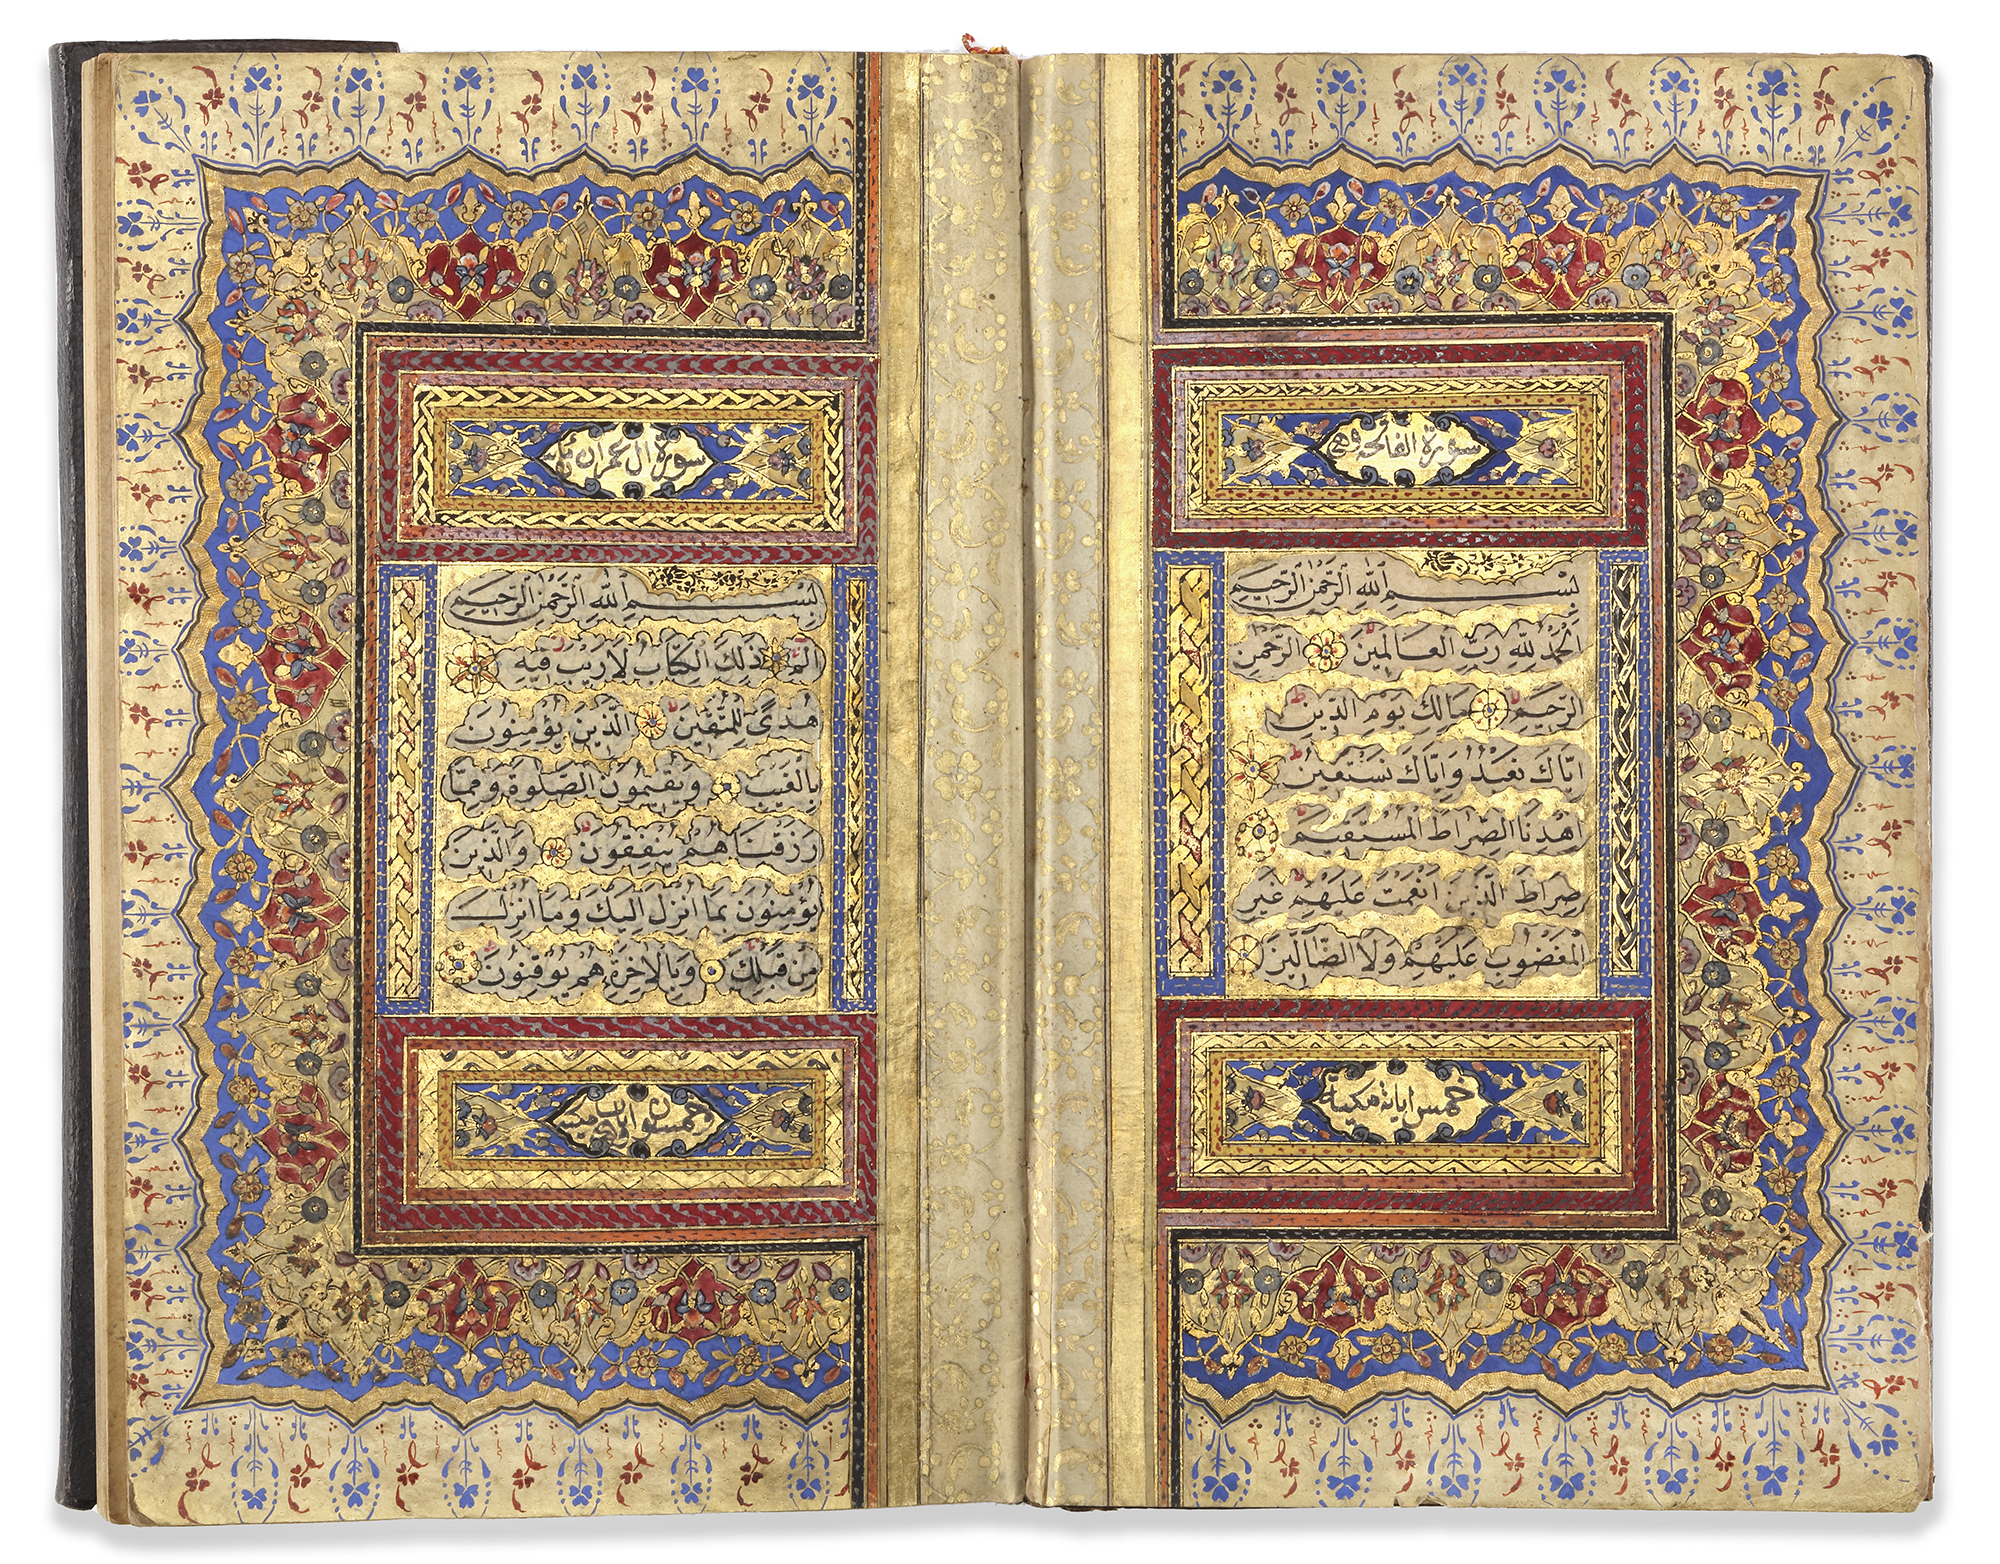 سورة الفاتحة وهي
بِسْمِ اللهِ الرَّحْمٰنِ الرَّحِيمِ
اَلْحَمْدُ لِلّٰهِ رَبِّ الْعَالَمِينَ الرَّحْمٰنِ
الرَّحِيمِ مَالِكِ يَوْمِ الدِّينِ
اِيَّاكَ نَعْبُدُ وَاِيَّاكَ نَسْتَعِينُ
اِهْدِنَا الصِّرَاطَ الْمُسْتَقِيمَ
صِرَاطَ الَّذِينَ اَنْعَمْتَ عَلَيْهِمْ غَيْرِ
الْمَغْضُوبِ عَلَيْهِمْ وَلَا الضَّالِّينَ
خمس ايات مكية
سورة ال عمران
بِسْمِ اللهِ الرَّحْمٰنِ الرَّحِيمِ
الم ذٰلِكَ الْكِتَابُ لَا رَيْبَ فِيهِ
هُدًى لِلْمُتَّقِينَ الَّذِينَ يُؤْمِنُونَ
بِالْغَيْبِ وَيُقِيمُونَ الصَّلٰوةَ وَمِمَّا
رَزَقْنَاهُمْ يُنْفِقُونَ وَالَّذِينَ
يُؤْمِنُونَ بِمَا اُنْزِلَ اِلَيْكَ وَمَا اُنْزِلَ
مِنْ قَبْلِكَ وَبِالْاٰخِرَةِ هُمْ يُوقِنُونَ
خمسون